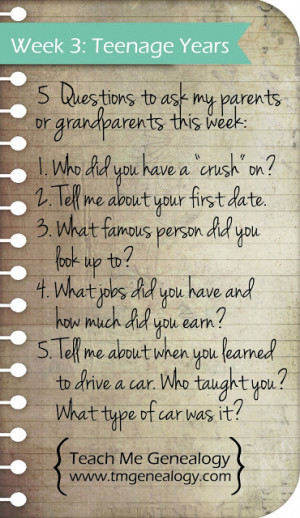 Week 3: Teenage Years
5 Questions to ask my parents
or grandparents this week:
1. Who did you have a "crush" on?
2. Tell me about your first date.
3. What famous person did you
look up to?
4. What jobs did you have and
how much did you earn?
5. Tell me about when you learned
to drive a car. Who taught you?
What type of car was it?
{ Teach Me Genealogy }
www.tmgenealogy.com